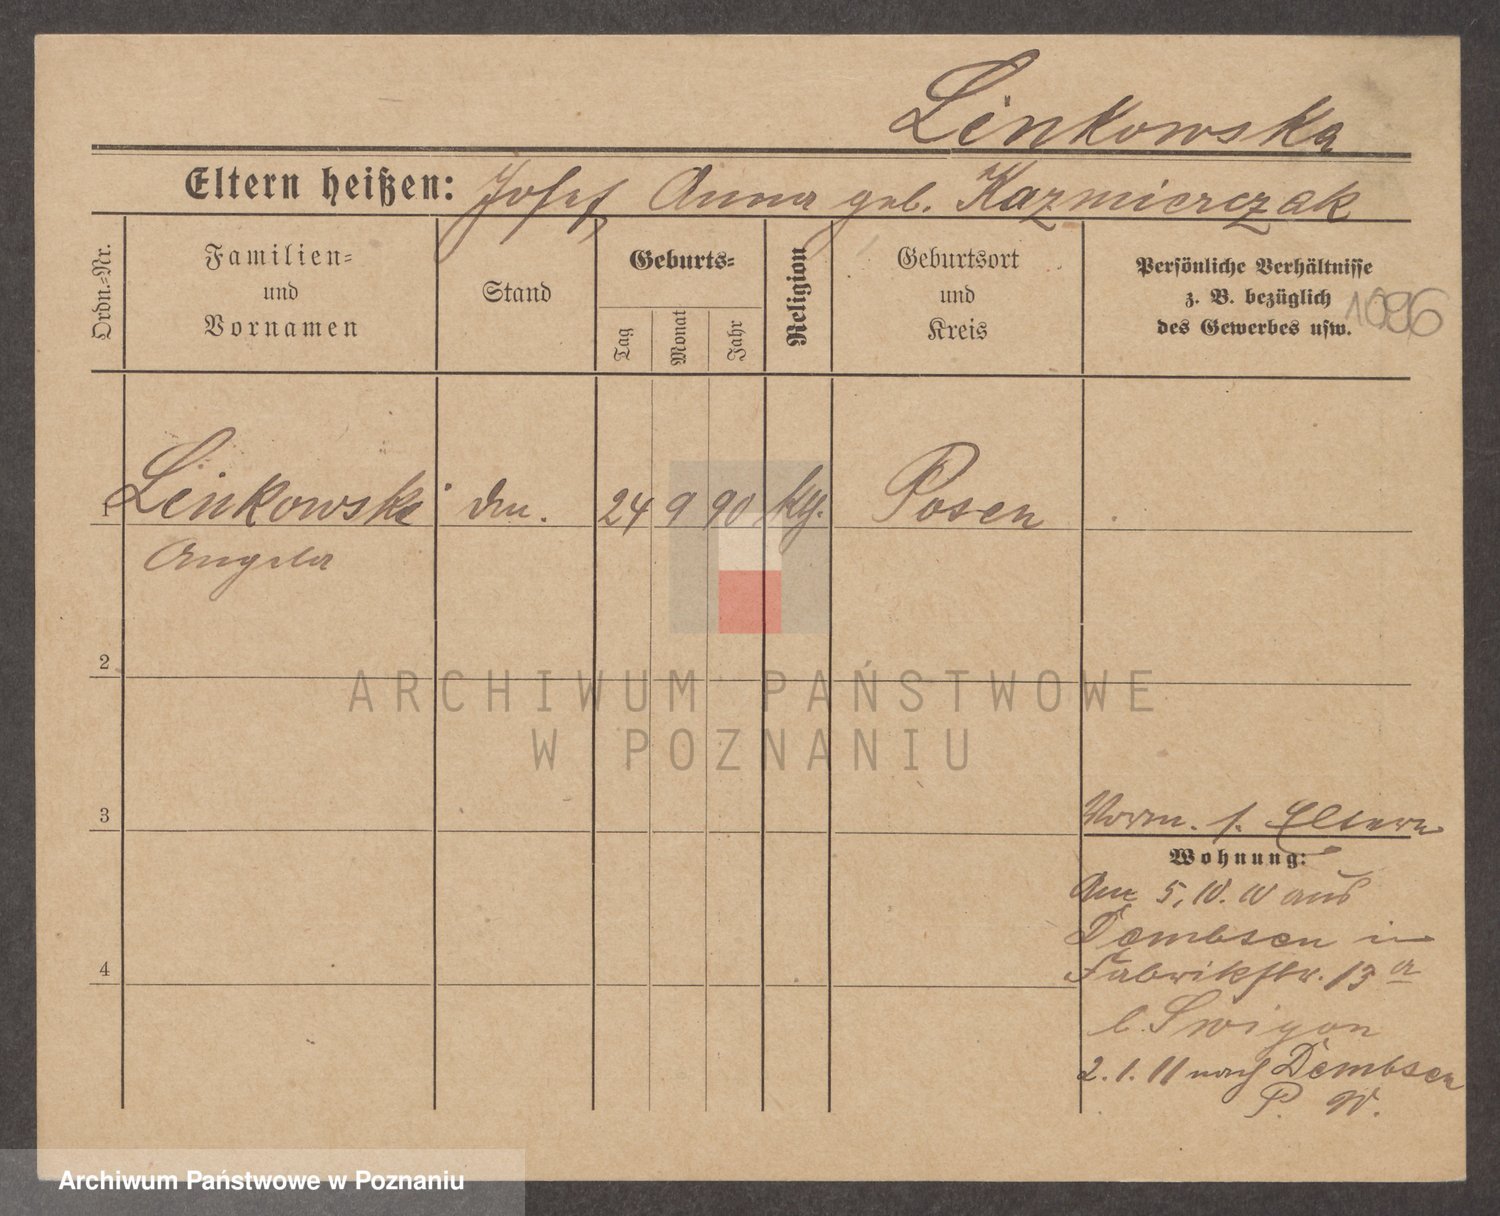 Linkowska
Eltern heißen: Josef, Anna geb. Kazmierczak
Ordn.-Nr.
Familien-
und
Vornamen
Stand
Geburts-
Tag
Monat
Jahr
Religion
Geburtsort
und
Kreis
Persönliche Verhältnisse
z. B. bezüglich
des Gewerbes usw.
1 Linkowski 24 9 90 kth. Posen
Angela
2
3
4
Vorm. s. Eltern
Wohnung:
Am 5. 10. 10 aus
Dembsen in
Fabrikstr. 13 a
b. Swigon
2. 1. 11 nach Dembsen
P. W.
ARCHIWUM PAŃSTWOWE
W POZNANIU
Archiwum Państwowe w Poznaniu